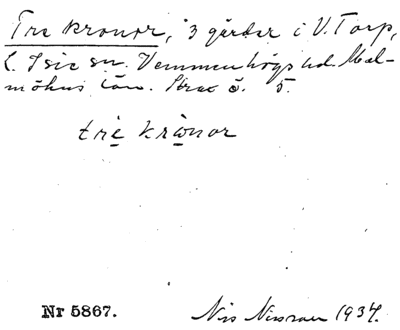 Tre kronor, 3 gårdar i V. Torp,
L. Isie sn. Vemmenhögs hd. Mal-
möhus län. Strax ö. 5.
trè krònor
Nr 5867.
Nils Nilsson 1934.